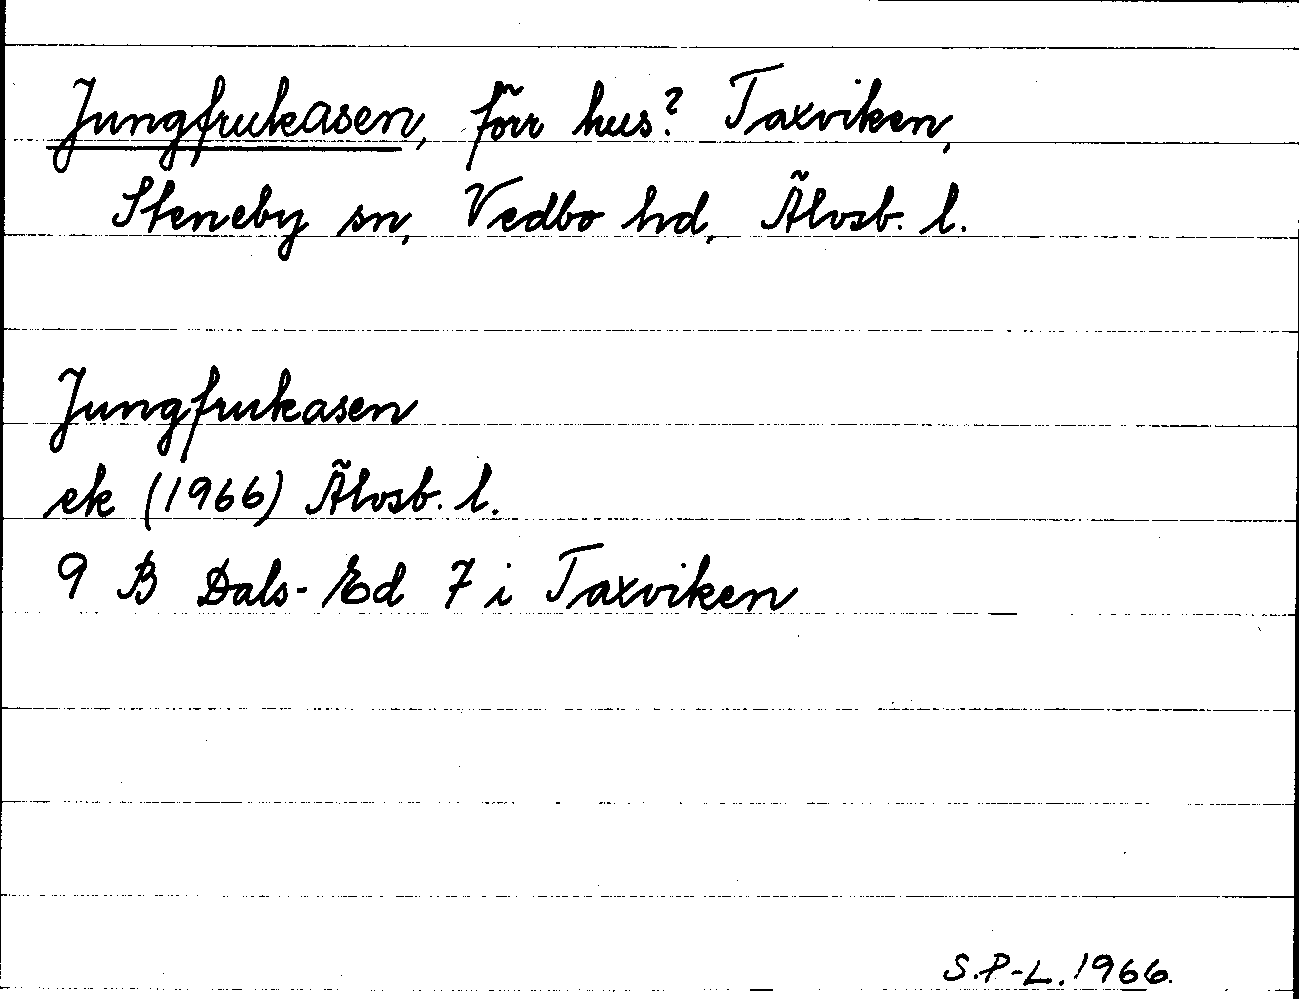 Jungfrukasen, förr hus? Taxviken,
Steneby sn, Vedbo hd, Älvsb. l.
Jungfrukasen
ek (1966) Älvsb. l.
9 B Dals-Ed 7 i Taxviken
S.P-L. 1966.